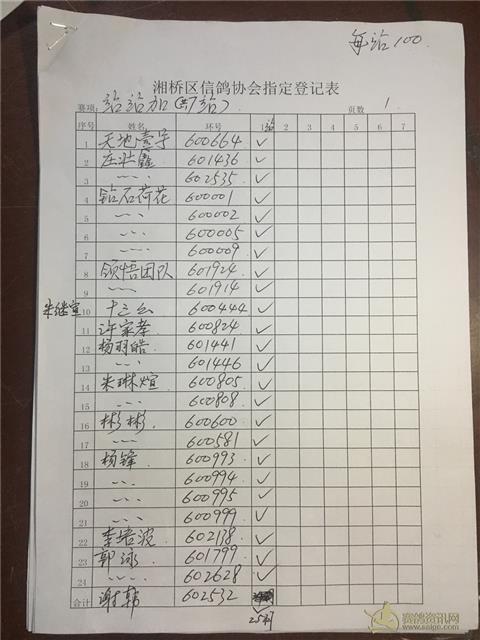 每站100.
湘桥区信鸽协会指定登记表
赛项: 站站加(共7站) 页数 1
序号 姓名 环号 1站 2 3 4 5 6 7
1 天地壹号 600664 ✓
2 庄壮鑫 601436 ✓
3 〃 602535 ✓
4 钻石荷花 600001 ✓
5 〃 600002 ✓
6 〃 600005 ✓
7 〃 600009 ✓
8 领悟团队 601924 ✓
9 〃 601914 ✓
朱继宣 10 十三么 600444 ✓
11 许家孝 600824 ✓
12 杨羽皓 601441 ✓
13 〃 601446 ✓
14 朱琳煊 600805 ✓
15 〃 600808 ✓
16 彬彬. 600600 ✓
17 〃 600581 ✓
18 杨锋. 600993 ✓
19 〃 600994 ✓
20 〃 600995 ✓
21 〃 600999 ✓
22 李培波 602138 ✓
23 郭泳. 601799 ✓
24 〃 602628 ✓
合计 谢韩 602532
✓
25羽
赛鸽资讯网
www.saige.com